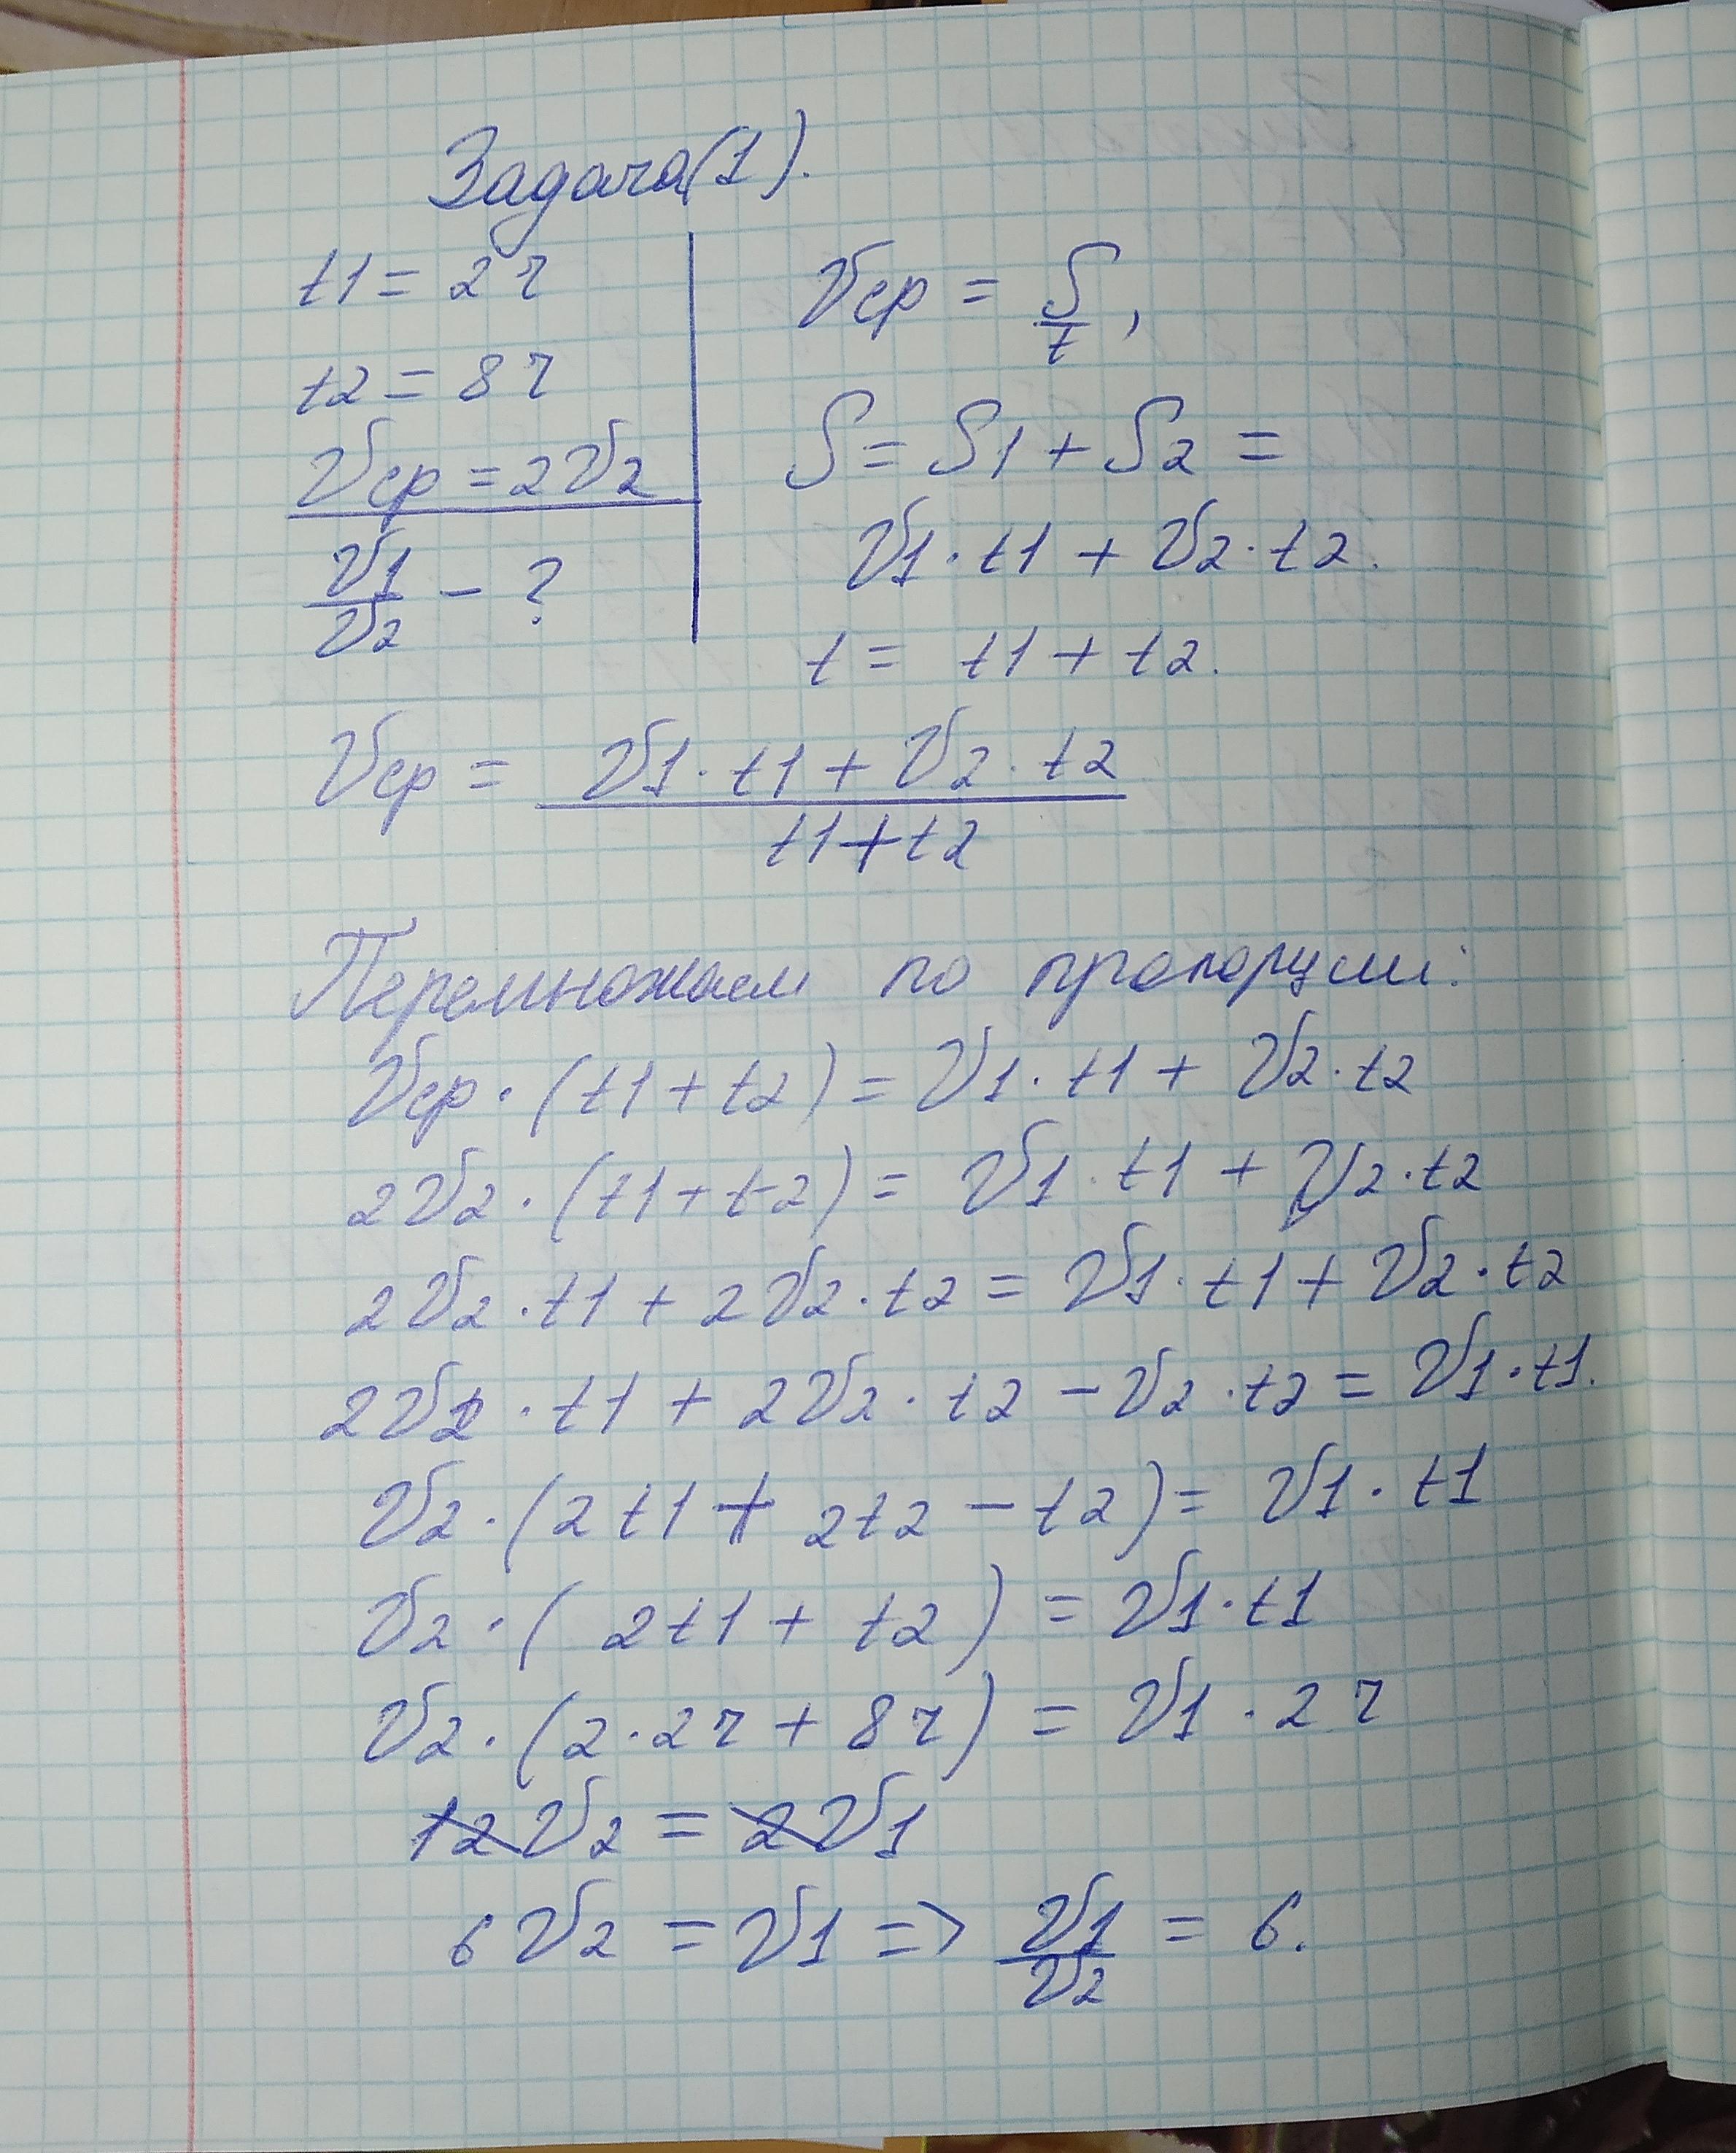 Задача(1).
t1 = 2ч
t2 = 8ч
Vср = 2V2
V1/V2 - ?
Vср = S/t,
S = S1 + S2 =
V1·t1 + V2·t2.
t = t1 + t2.
Vср = V1·t1 + V2·t2 / t1 + t2
Перемножаем по пропорции:
Vср·(t1 + t2) = V1·t1 + V2·t2
2V2·(t1 + t2) = V1·t1 + V2·t2
2V2·t1 + 2V2·t2 = V1·t1 + V2·t2
2V2·t1 + 2V2·t2 - V2·t2 = V1·t1.
V2·(2t1 + 2t2 - t2) = V1·t1
V2·(2t1 + t2) = V1·t1
V2·(2·2ч + 8ч) = V1·2ч
12V2 = 2V1
6V2 = V1 => V1/V2 = 6.